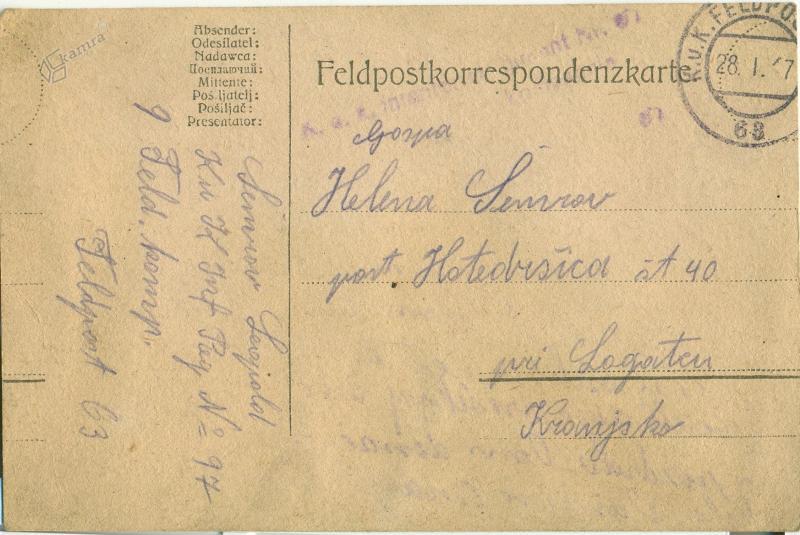 kamra
Absender:
Odesílatel:
Nadawca:
Посилаючий:
Mittente:
Pošiljatelj:
Pošiljač:
Presentator:
Feldpostkorrespondenzkarte
K.u.K. FELDPOS
28. I. 17
63
Gospa
Helena Šemrov
post Hotedršica št 40
pri Logatcu
Kranjsko
Šemrov Leopold
K u K Inf Reg No 97
9 Feld. komp.
Feldpost 63